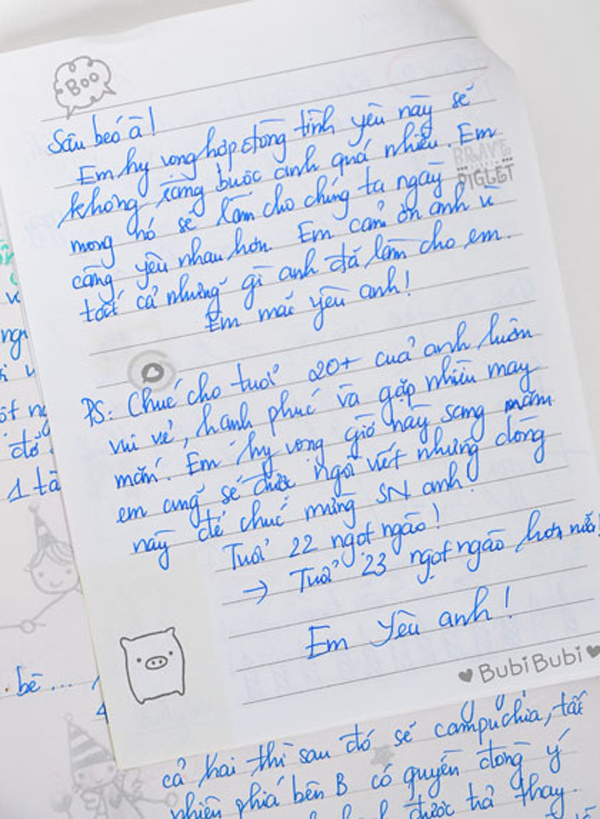 Boo
Sâu béo à!
Em hy vọng hợp đồng tình yêu này sẽ
không ràng buộc anh quá nhiều. Em
BRAVE
PIGLET
mong nó sẽ làm cho chúng ta ngày
càng yêu nhau hơn. Em cảm ơn anh vì
tất cả những gì anh đã làm cho em.
Em mãi yêu anh!
PS: Chúc cho tuổi 20+ của anh luôn
vui vẻ, hạnh phúc và gặp nhiều may
mắn. Em hy vọng giờ này sang năm
em cũng sẽ được ngồi viết những dòng
này để chúc mừng SN anh.
Tuổi 22 ngọt ngào!
→ Tuổi 23 ngọt ngào hơn nữa!
Em yêu anh!
BubiBubi
bê...
1 tá
cả hai thì sau đó sẽ campuchia, tất
nhiên phía bên B có quyền đồng ý
được trả thay.